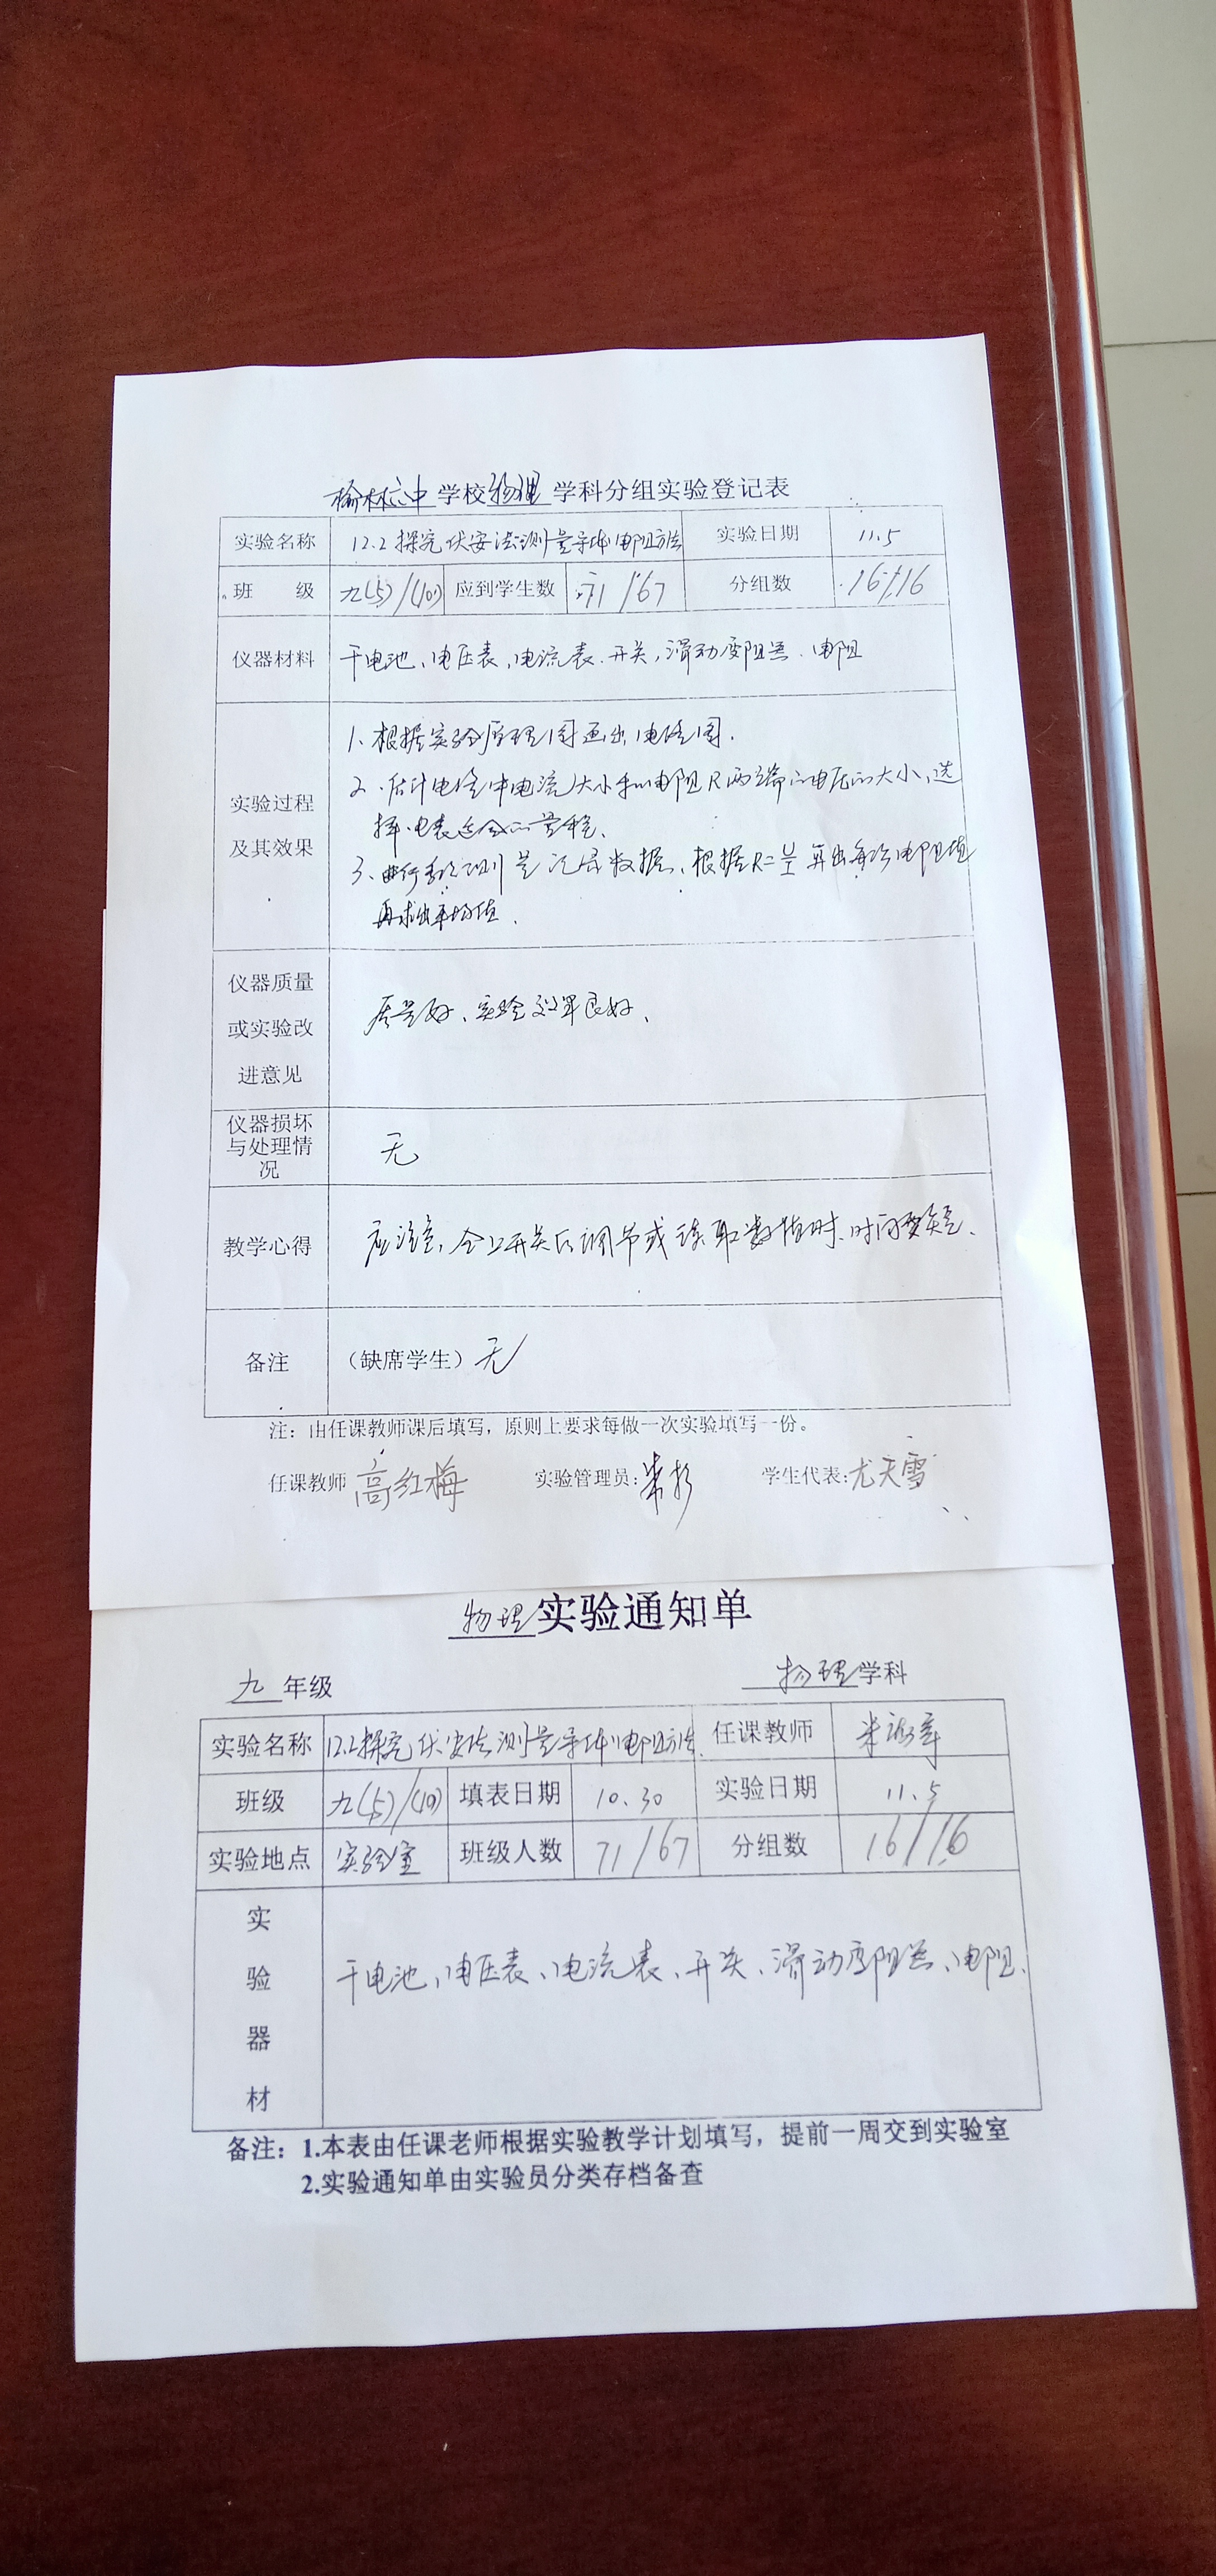 榆林六中学校物理学科分组实验登记表
实验名称 12.2探究伏安法测量导体电阻方法 实验日期 11.5
班 级 九(5)/(10) 应到学生数 71/67 分组数 16/16
仪器材料 干电池、电压表、电流表、开关、滑动变阻器、电阻
实验过程及其效果
1、根据实验原理图画出电路图.
2、估计电路中电流大小和电阻R两端的电压的大小,选
择电表适合的量程、
3、进行多次测量记录数据、根据R=U/I 算出每次电阻值
再求出平均值.
仪器质量或实验改进意见 质量好、实验效果良好、
仪器损坏与处理情况 无
教学心得 应注意,合上开关后调节或读取数值时、时间要短、
备注 (缺席学生) 无
注:由任课教师课后填写,原则上要求每做一次实验填写一份。
任课教师 高红梅 实验管理员: 学生代表:尤天雪
物理实验通知单
九年级 物理学科
实验名称 12.2探究伏安法测量导体电阻方法 任课教师
班级 九(5)/(10) 填表日期 10.30 实验日期 11.5
实验地点 实验室 班级人数 71/67 分组数 16/16
实验器材 干电池、电压表、电流表、开关、滑动变阻器、电阻、
备注:1.本表由任课老师根据实验教学计划填写,提前一周交到实验室
2.实验通知单由实验员分类存档备查